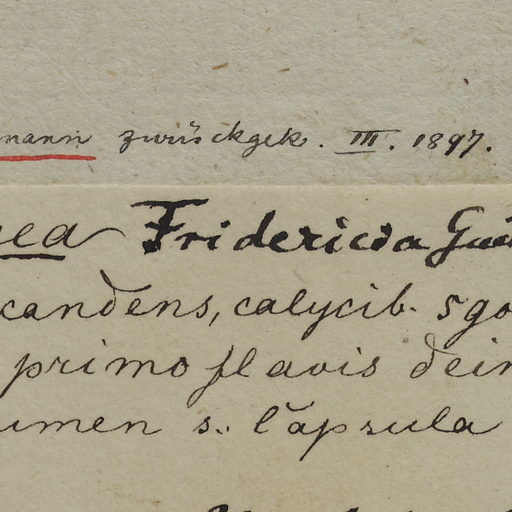 mann zurückgek. III. 1897.
Fridericia
candens, calycib. 5go
primo flavis dein
umen s. capsula